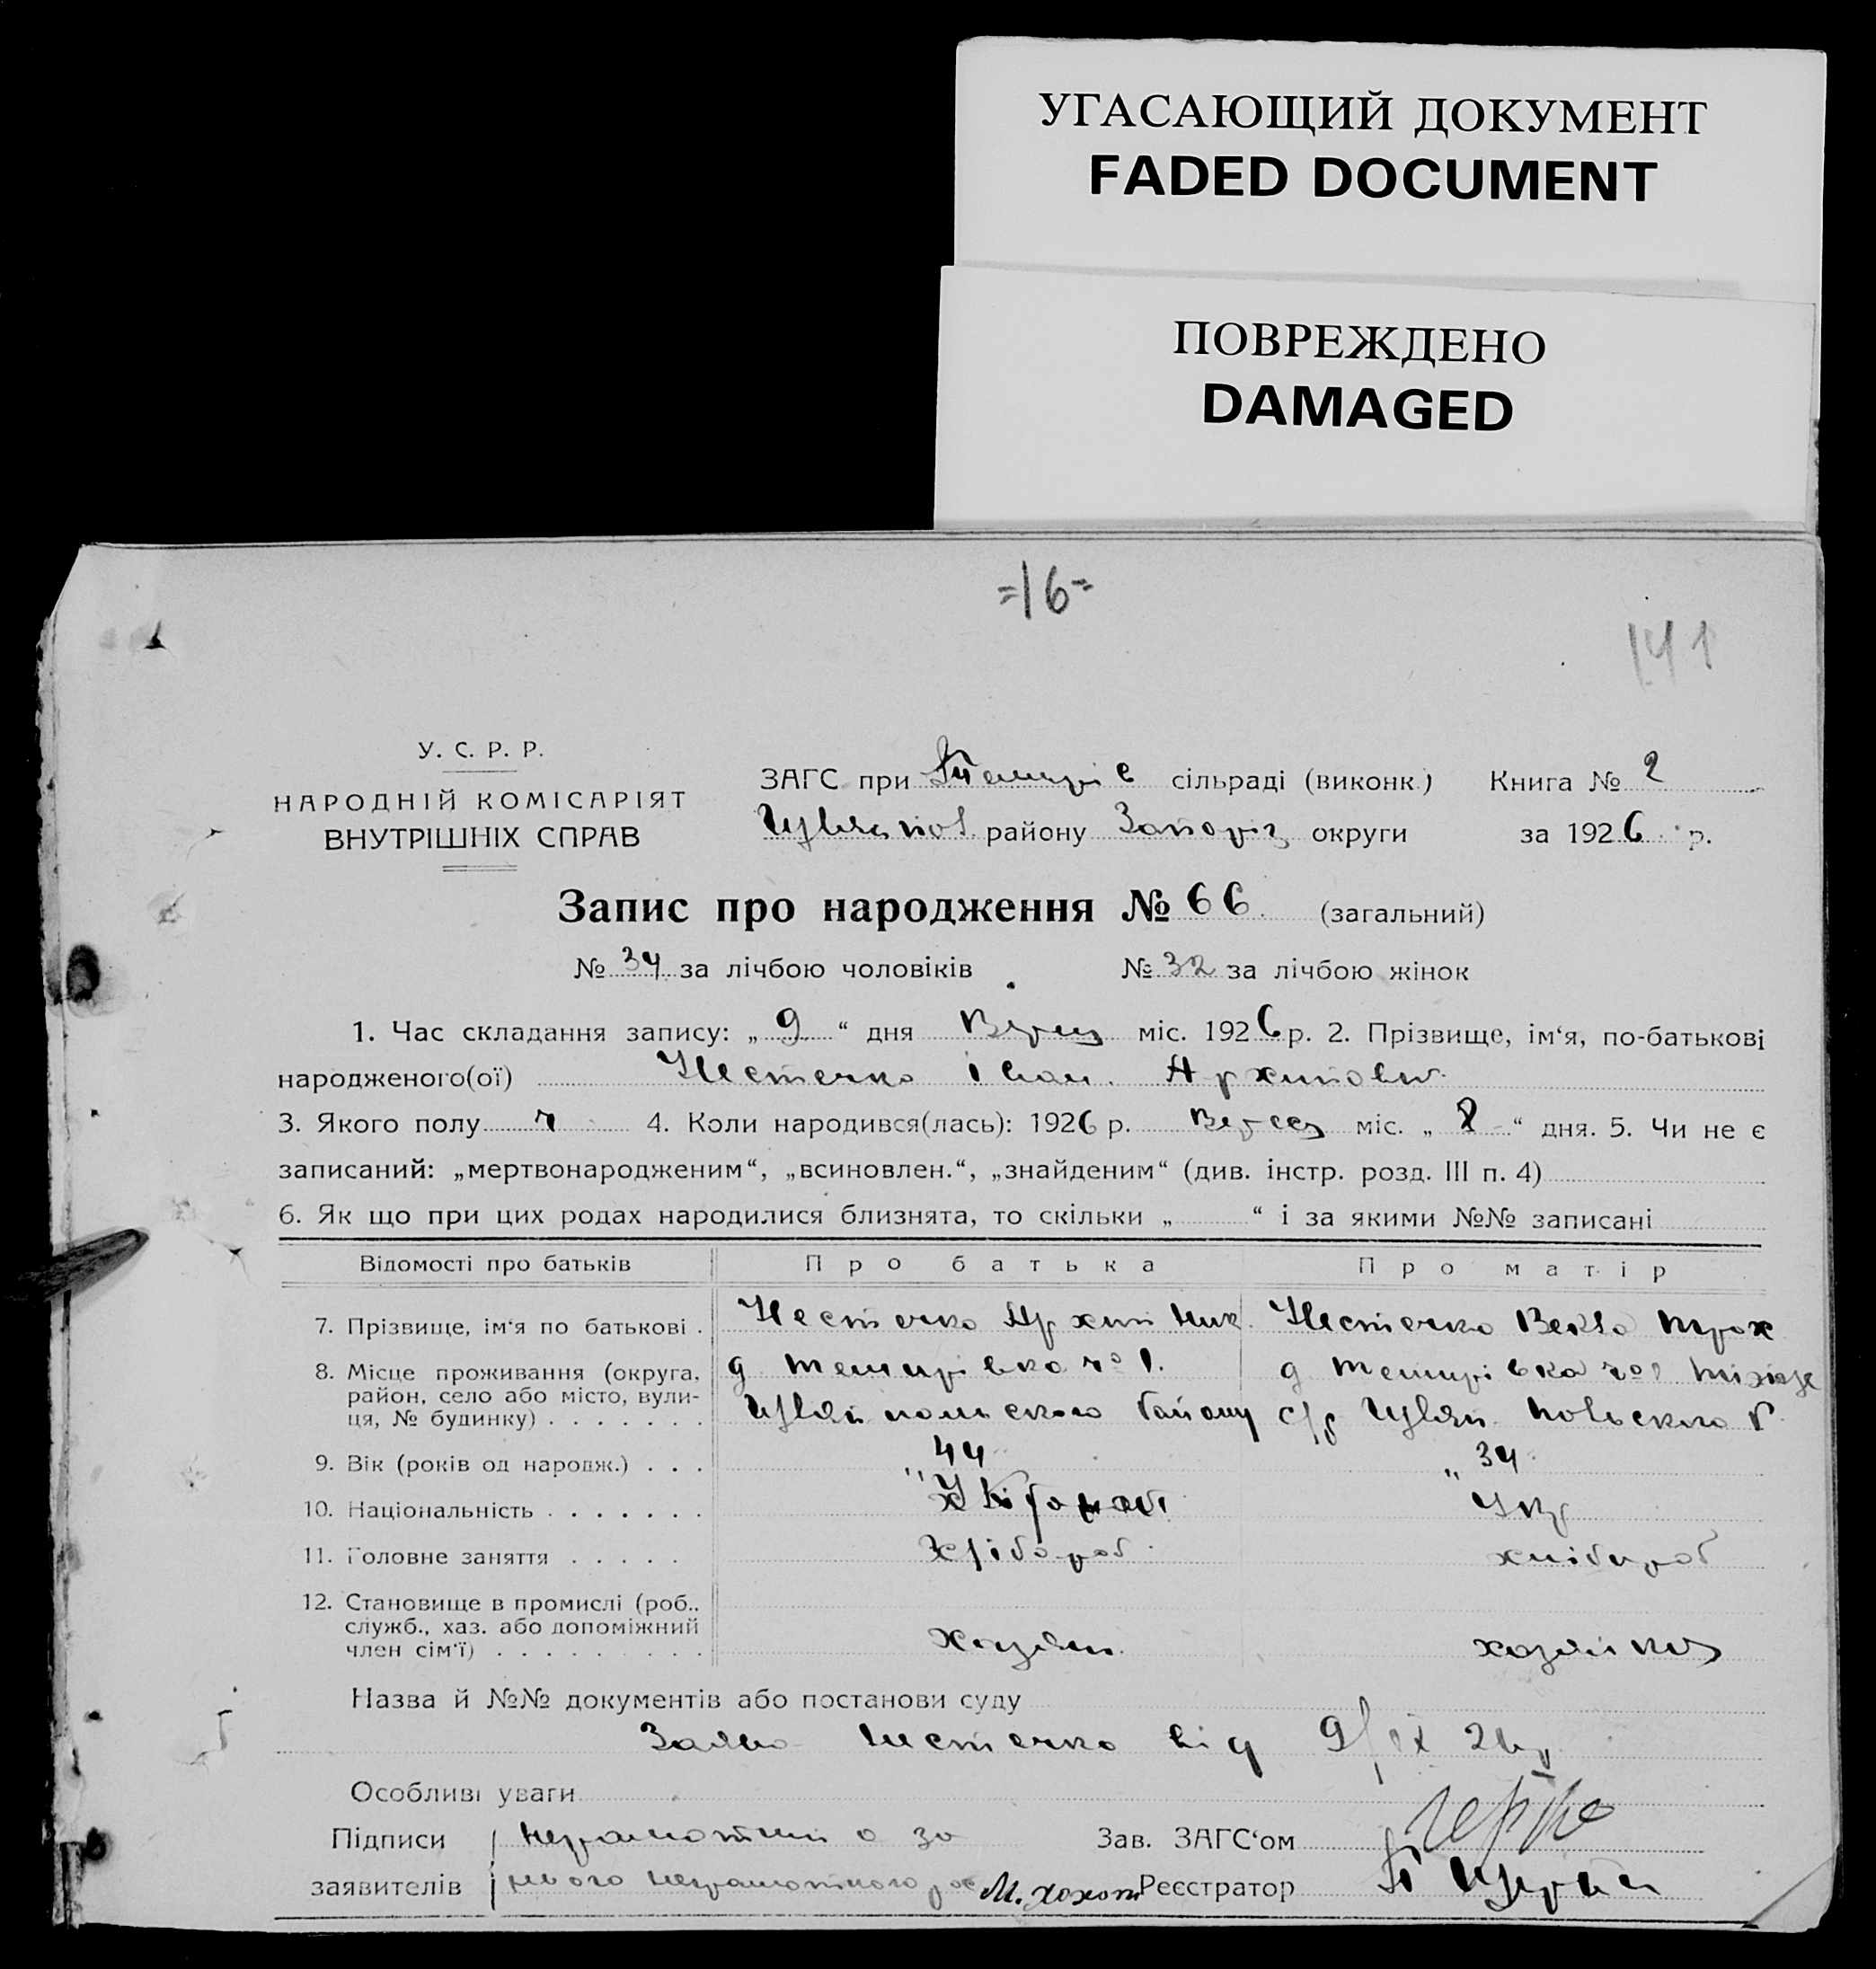 УГАСАЮЩИЙ ДОКУМЕНТ
FADED DOCUMENT
ПОВРЕЖДЕНО
DAMAGED
=16=
141
У. С. Р. Р.
НАРОДНІЙ КОМІСАРІЯТ
ВНУТРІШНІХ СПРАВ
ЗАГС при Темирів сільраді (виконк.) Книга № 2
району Запоріз округи за 1926 р.
Запис про народження № 66 (загальний)
№ 34 за лічбою чоловіків № 32 за лічбою жінок
1. Час складання запису: „ 9 “ дня міс. 1926 р. 2. Прізвище, ім‘я, по-батькові
народженого(ої) Нестечко Іван Архипович
3. Якого полу ч 4. Коли народився(лась): 1926 р. міс. „ 8 “ дня. 5. Чи не є
записаний: „мертвонародженим“, „всиновлен.“, „знайденим“ (див. інстр. розд. III п. 4)
6. Як що при цих родах народилися близнята, то скільки „ “ і за якими №№ записані
Відомості про батьків Про батька Про матір
7. Прізвище, ім‘я по батькові . Нестечко Архип Ник. Нестечко Векла Трох
8. Місце проживання (округа, д Темирівка №1. д Темирівка №1
район, село або місто, вули- с/р
ця, № будинку) . . . . . . .
9. Вік (років од народж.) . . . 44 „ 34
10. Національність . . . . . . . Укр
11. Головне заняття . . . . . хлібороб хлібороб
12. Становище в промислі (роб.,
служб., хаз. або допоміжний
член сім‘ї) . . . . . . . . . хазяин хозяйка
Назва й №№ документів або постанови суду
Заява Нестечко від 9/IX 26р
Особливі уваги
Підписи неграмотний а за Зав. ЗАГС‘ом
заявителів нього неграмотного рос М. Хохот Реєстратор